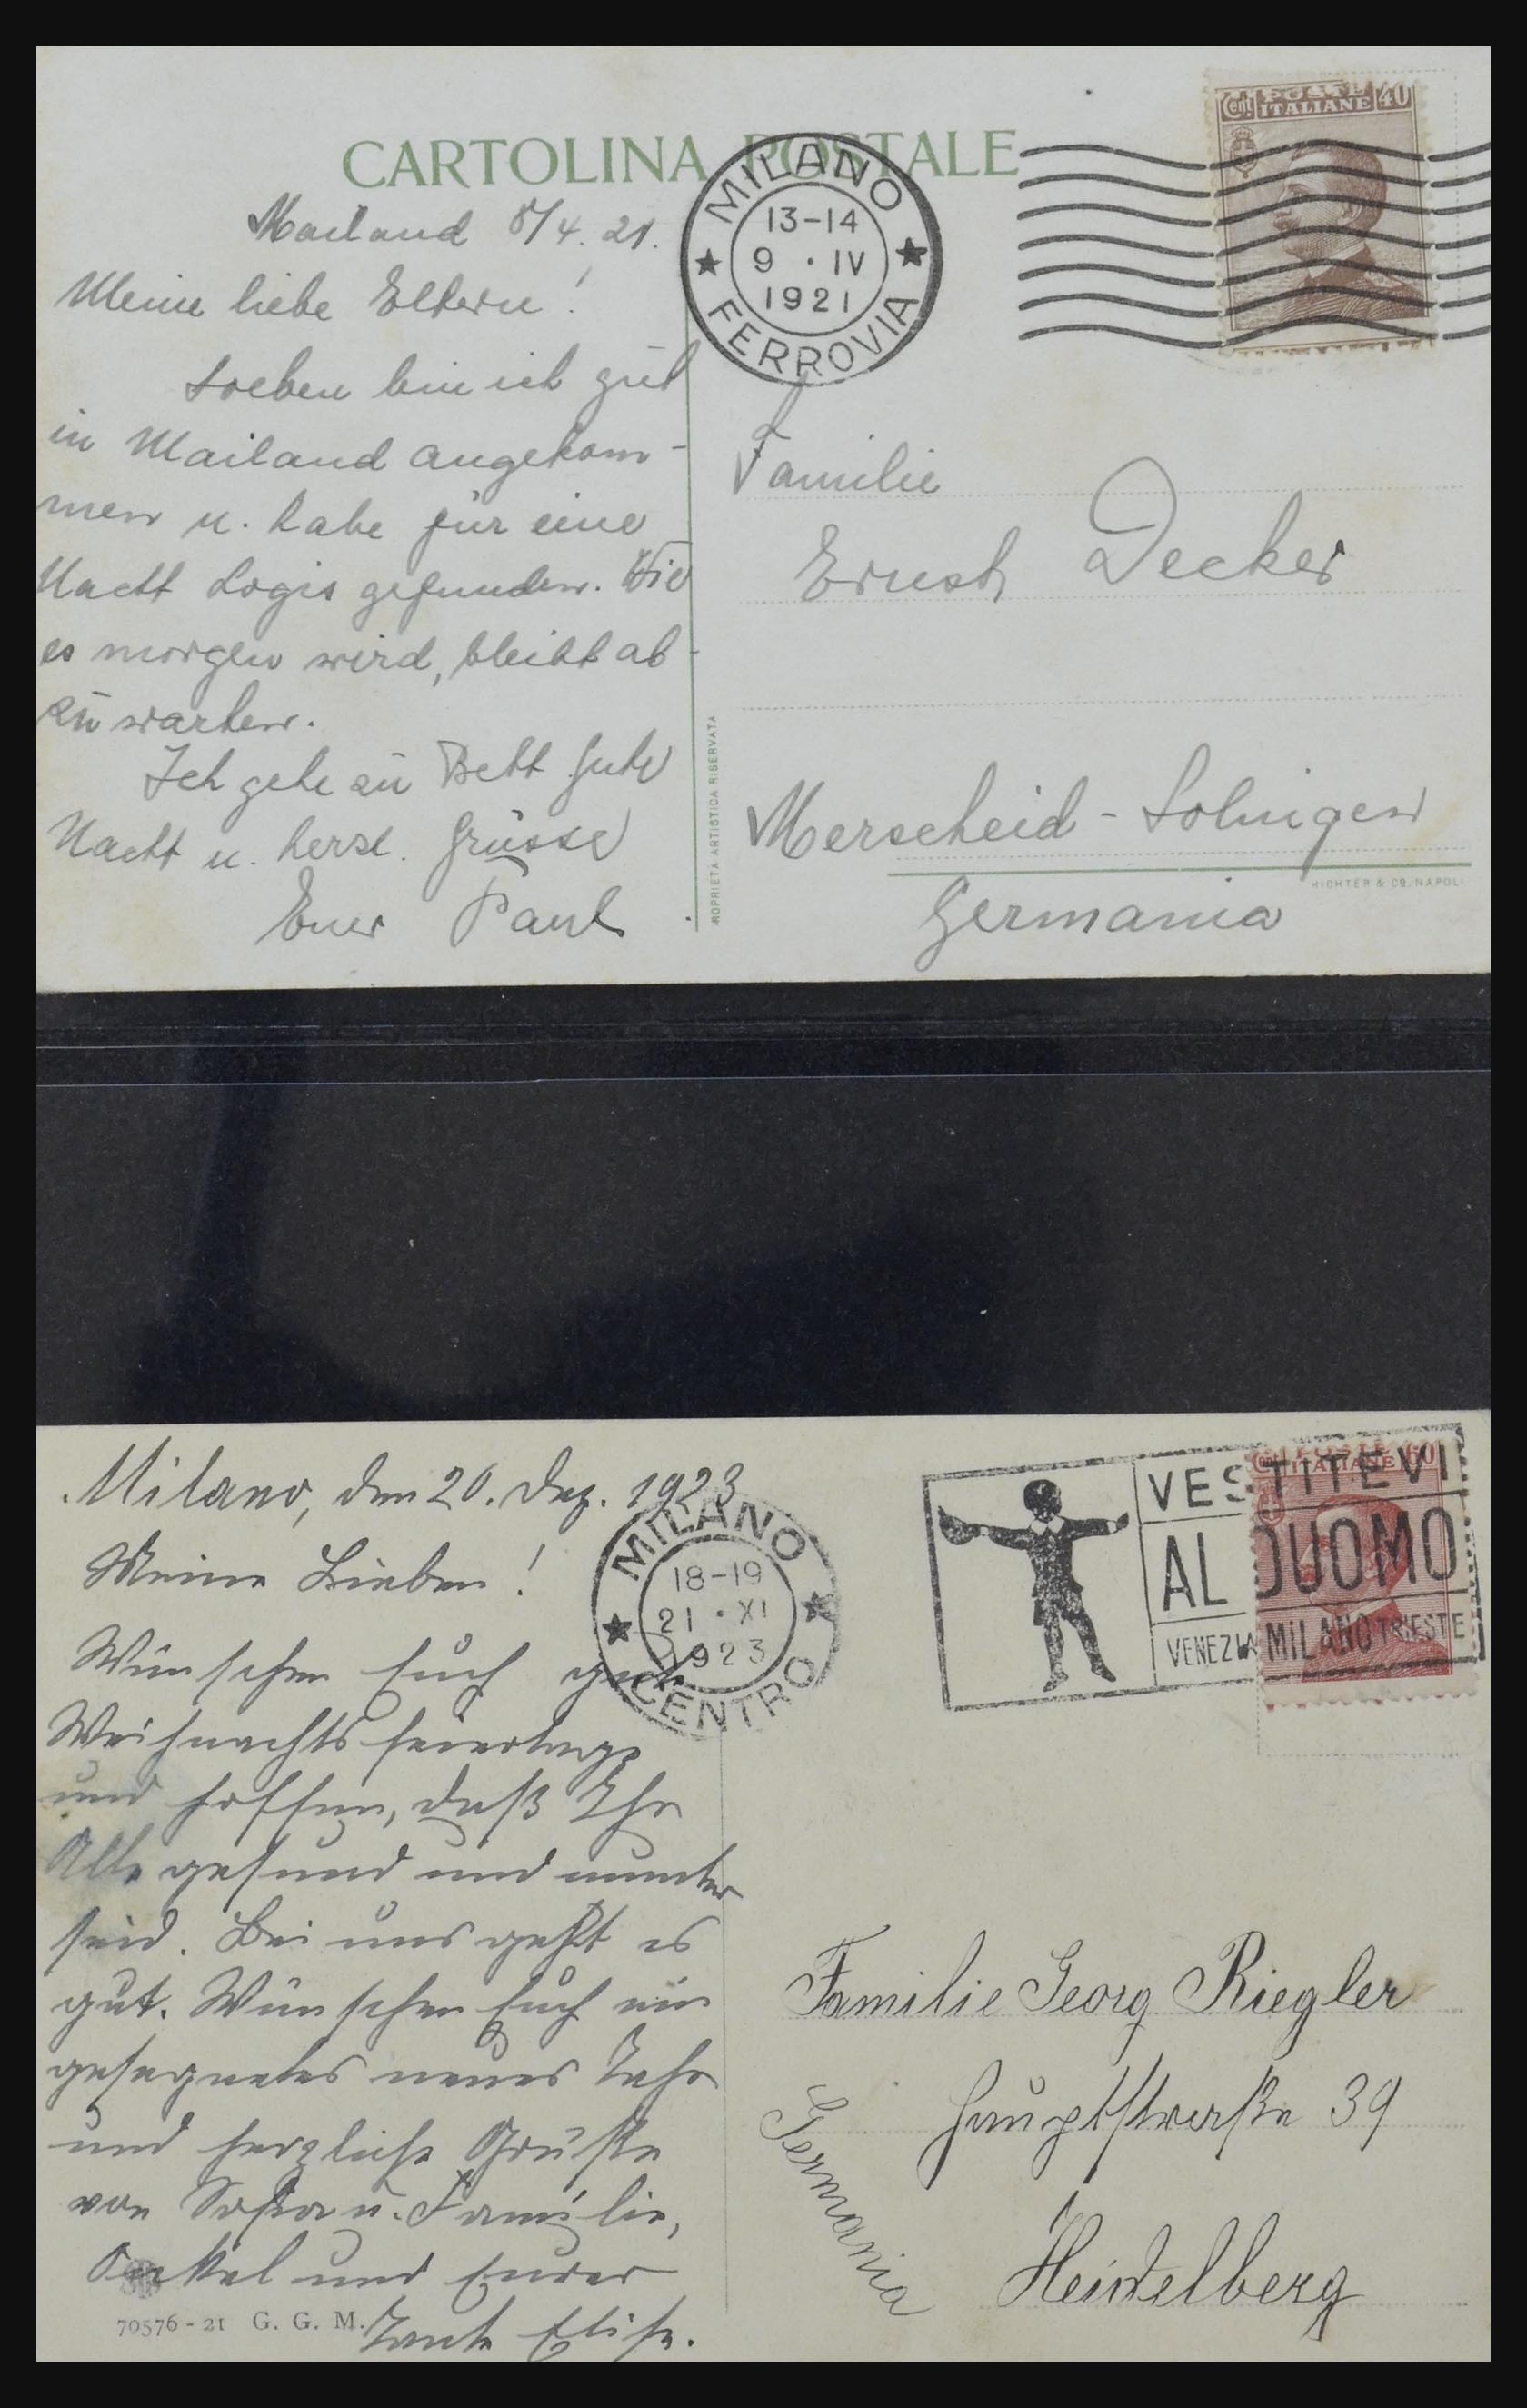 CARTOLINA POSTALE
Cent. POSTE ITALIANE 40
MILANO
13-14
9 · IV
1921
FERROVIA
Mailand 8/4. 21.
Meine liebe Eltern!
Soeben bin ich gut
in Mailand angekom-
men u. habe für eine
Nacht Logis gefunden. Wie
es morgen wird, bleibt ab-
zu warten.
Ich gehe zu Bett Gute
Nacht u. herzl. Grüsse
Euer Paul
PROPRIETÀ ARTISTICA RISERVATA
Familie
Ernst Decker
Merscheid - Solingen
RICHTER & Co. NAPOLI
Germania
Milano, den 20. Dez. 1923
MILANO
18-19
21 · XI
1923
CENTRO
Cent. POSTE ITALIANE 60
VESTITEVI
AL DUOMO
VENEZIA MILANO TRIESTE
Meine Lieben!
Wünschen Euch gute
Weihnachtsfeiertage
und hoffen, daß Ihr
Alle gesund und munter
seid. Bei uns geht es
gut. Wünschen Euch ein
gesegnetes neues Jahr
und herzliche Grüße
von u. Familie,
Onkel und Eurer
Tante Elise.
70576 - 21 G. G. M.
Familie Georg Riegler
Hauptstraße 39
Heidelberg
Germania